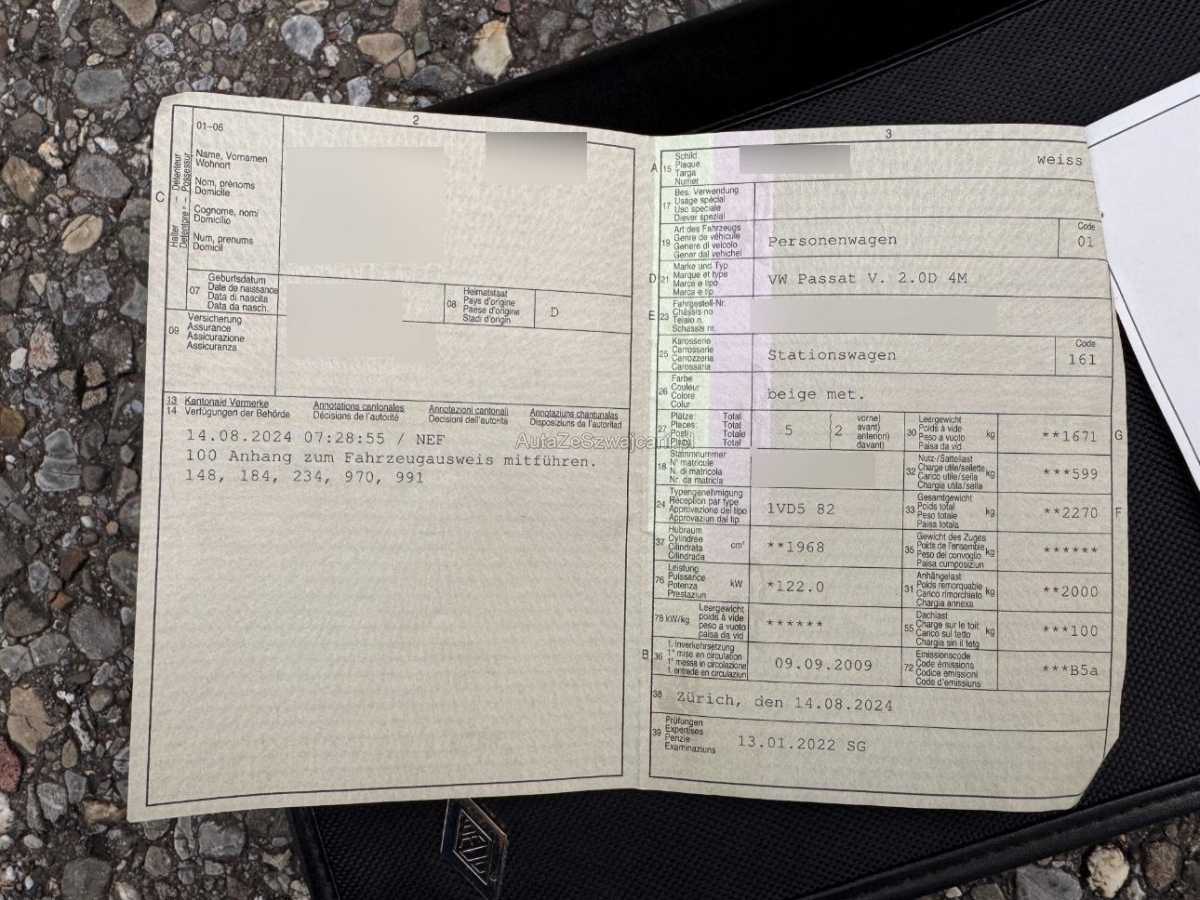 2
01-06
C
Halter - Détenteur
Detentore - Possessur
Name, Vornamen
Wohnort
Nom, prénoms
Domicile
Cognome, nomi
Domicilio
Num, prenums
Domicil
07
Geburtsdatum
Date de naissance
Data di nascita
Data da nasch.
08
Heimatstaat
Pays d'origine
Paese d'origine
Stadi d'origin
D
09
Versicherung
Assurance
Assicurazione
Assicuranza
13 Kantonale Vermerke
14 Verfügungen der Behörde
Annotations cantonales
Décisions de l'autorité
Annotazioni cantonali
Decisioni dell'autorità
Annotaziuns chantunalas
Disposiziuns da l'autoritad
14.08.2024 07:28:55 / NEF
100 Anhang zum Fahrzeugausweis mitführen.
148, 184, 234, 970, 991
3
A 15
Schild
Plaque
Targa
Numer
weiss
17
Bes. Verwendung
Usage spécial
Uso speciale
Diever spezial
19
Art des Fahrzeugs
Genre de véhicule
Genere di veicolo
Gener dal vehichel
Personenwagen
Code
01
D 21
Marke und Typ
Marque et type
Marca e tipo
Marca e tip
VW Passat V. 2.0D 4M
E 23
Fahrgestell-Nr.
Châssis no
Telaio n.
Schassis nr.
25
Karosserie
Carrosserie
Carrozzeria
Carossaria
Stationswagen
Code
161
26
Farbe
Couleur
Colore
Colur
beige met.
27
Plätze: Total
Places: Total
Posti: Totale
Total
5
(2
vorne)
avant)
anteriori)
davant)
30
Leergewicht
Poids à vide
Peso a vuoto
Paisa da vid
kg
**1671
G
18
Stammnummer
N° matricule
N. di matricola
Nr. da matricla
32
Nutz-/Sattellast
Charge utile/sellette
Carico utile/sella
Chargia utila/sella
kg
***599
24
Typengenehmigung
Réception par type
Approvazione del tipo
Approvaziun dal tip
1VD5 82
33
Gesamtgewicht
Poids total
Peso totale
Paisa totala
kg
**2270
F
37
Hubraum
Cylindrée
Cilindrata
Cilindrada
cm³
**1968
35
Gewicht des Zuges
Poids de l'ensemble
Peso del convoglio
Paisa cumposiziun
kg
******
76
Leistung
Puissance
Potenza
Prestaziun
kW
*122.0
31
Anhängelast
Poids remorquable
Carico rimorchiato
Chargia annexa
kg
**2000
78 kW/kg
Leergewicht
poids à vide
peso a vuoto
paisa da vid
******
55
Dachlast
Charge sur le toit
Carico sul tetto
Chargia sin il tetg
kg
***100
B 36
1. Inverkehrsetzung
1re mise en circulation
1a messa in circolazione
1. entrada en circulaziun
09.09.2009
72
Emissionscode
Code émissions
Codice emissioni
Code d'emissiuns
***B5a
38
Zürich, den 14.08.2024
39
Prüfungen
Expertises
Perizie
Examinaziuns
13.01.2022 SG